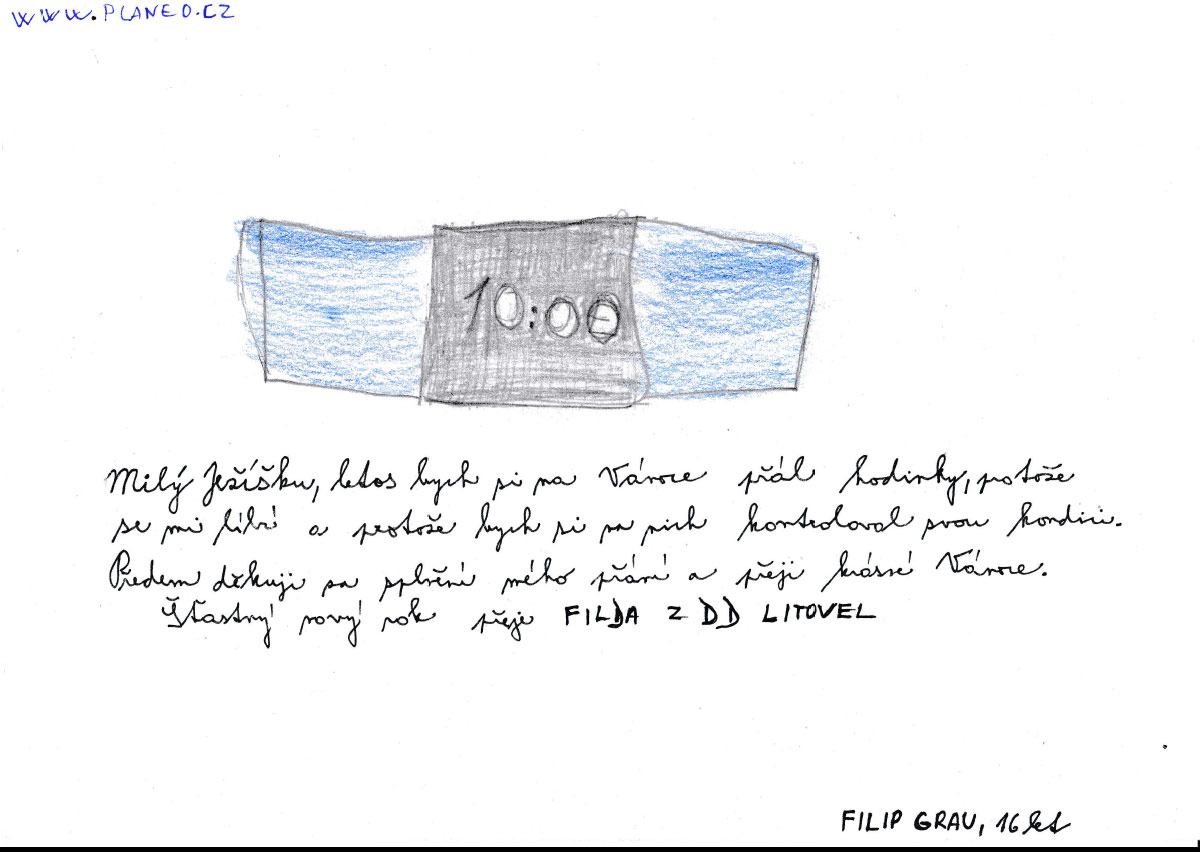 WWW.PLANEO.CZ
10:00
Milý Ježíšku, letos bych si na Vánoce přál hodinky, protože
se mi líbí a protože bych si na nich kontroloval svou kondici.
Předem děkuji za splnění mého přání a přeji krásné Vánoce.
Šťastný nový rok přeje FILDA Z DD LITOVEL
FILIP GRAU, 16 let